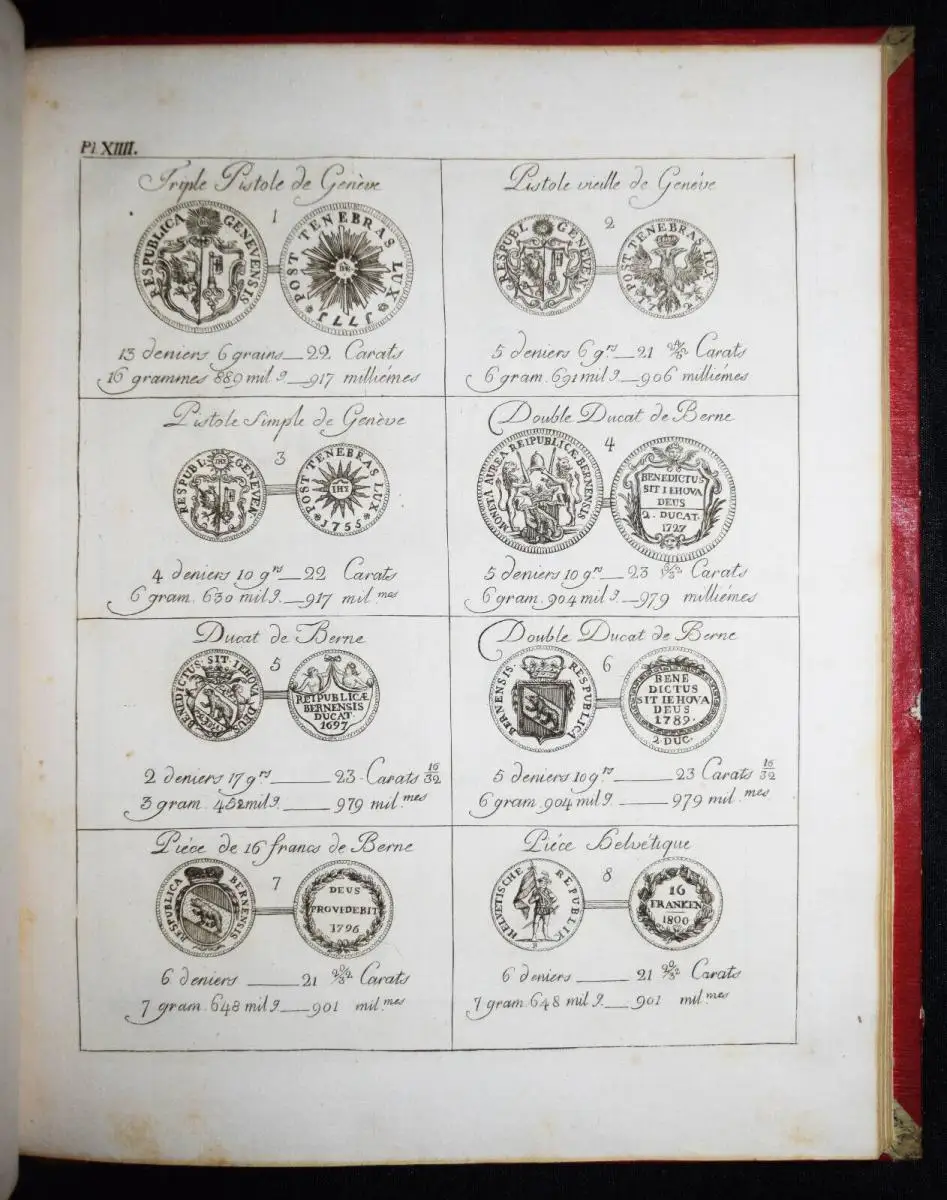 Pl XIIII.
Triple Pistole de Genève
1
RESPUBLICA GENEVENSIS
POST TENEBRAS LUX
1771
13 deniers 6 grains 22 Carats
16 grammes 889 mil g. 917 milliémes
Pistole vieille de Genéve
2
RESPUBL GENEVEN
POST TENEBRAS LUX
5 deniers 6 grs 21 Carats
6 gram. 691 mil g. 906 milliémes
Pistole Simple de Genève
3
RESPUBL GENEVEN
POST TENEBRAS LUX
IHΥ
1755
4 deniers 10 grs 22 Carats
6 gram. 630 mil g. 917 mil.mes
Double Ducat de Berne
4
MONETA AUREA REIPUBLICÆ BERNENSIS
BENEDICTUS
SIT IEHOVA
DEUS
2. DUCAT.
1727
5 deniers 10 grs 23 Carats
6 gram. 904 mil g. 979 milliémes
Ducat de Berne
5
BENEDICTUS SIT IEHOVA DEUS
REIPUBLICÆ
BERNENSIS
DUCAT.
1697
2 deniers 17 grs 23 Carats 16/32
3 gram. 452 mil g. 979 mil.mes
Double Ducat de Berne
6
BERNENSIS RESPUBLICA
BENE
DICTUS
SIT IEHOVA
DEUS
1789.
2 DUC.
5 deniers 10 grs 23 Carats 16/32
6 gram. 904 mil g. 979 mil.mes
Piéce de 16 francs de Berne
7
RESPUBLICA BERNENSIS
DEUS
PROVIDEBIT
1796
6 deniers 21 Carats
7 gram. 648 mil g. 901 mil.mes
Piéce Helvétique
8
HELVETISCHE REPUBLIK
16
FRANKEN
1800
6 deniers 21 Carats
7 gram. 648 mil g. 901 mil.mes